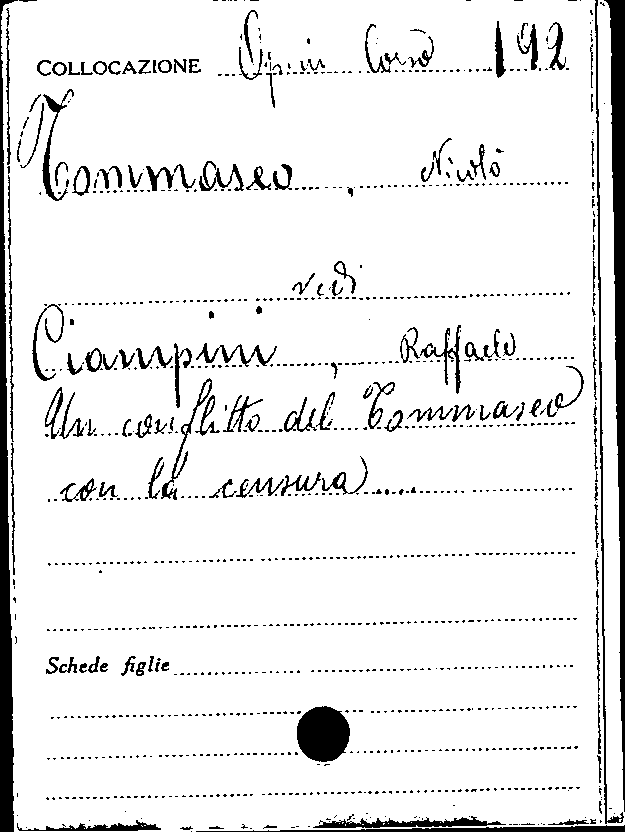 COLLOCAZIONE Corso 192
Tommaseo, Nicolò
vedi
Ciampini, Raffaele
Un conflitto del Tommaseo
con la censura....
Schede figlie